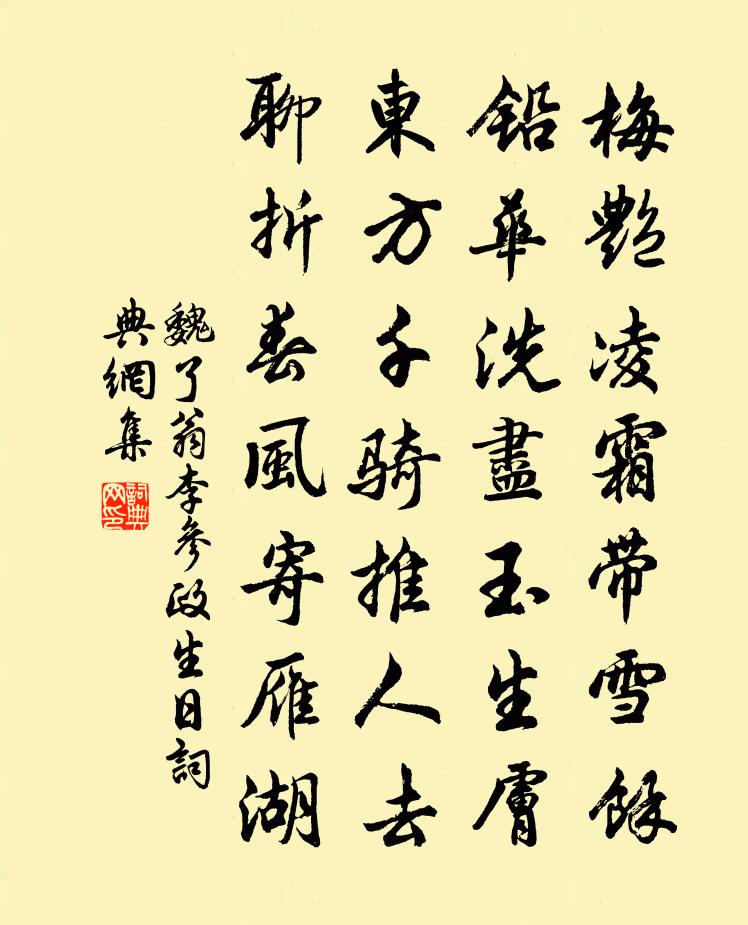 梅艷凌霜带雪餘
鉛華洗盡玉生膚
東方千騎推人去
聊折春風寄雁湖
魏了翁李參政生日詞
典網集
詞典网印